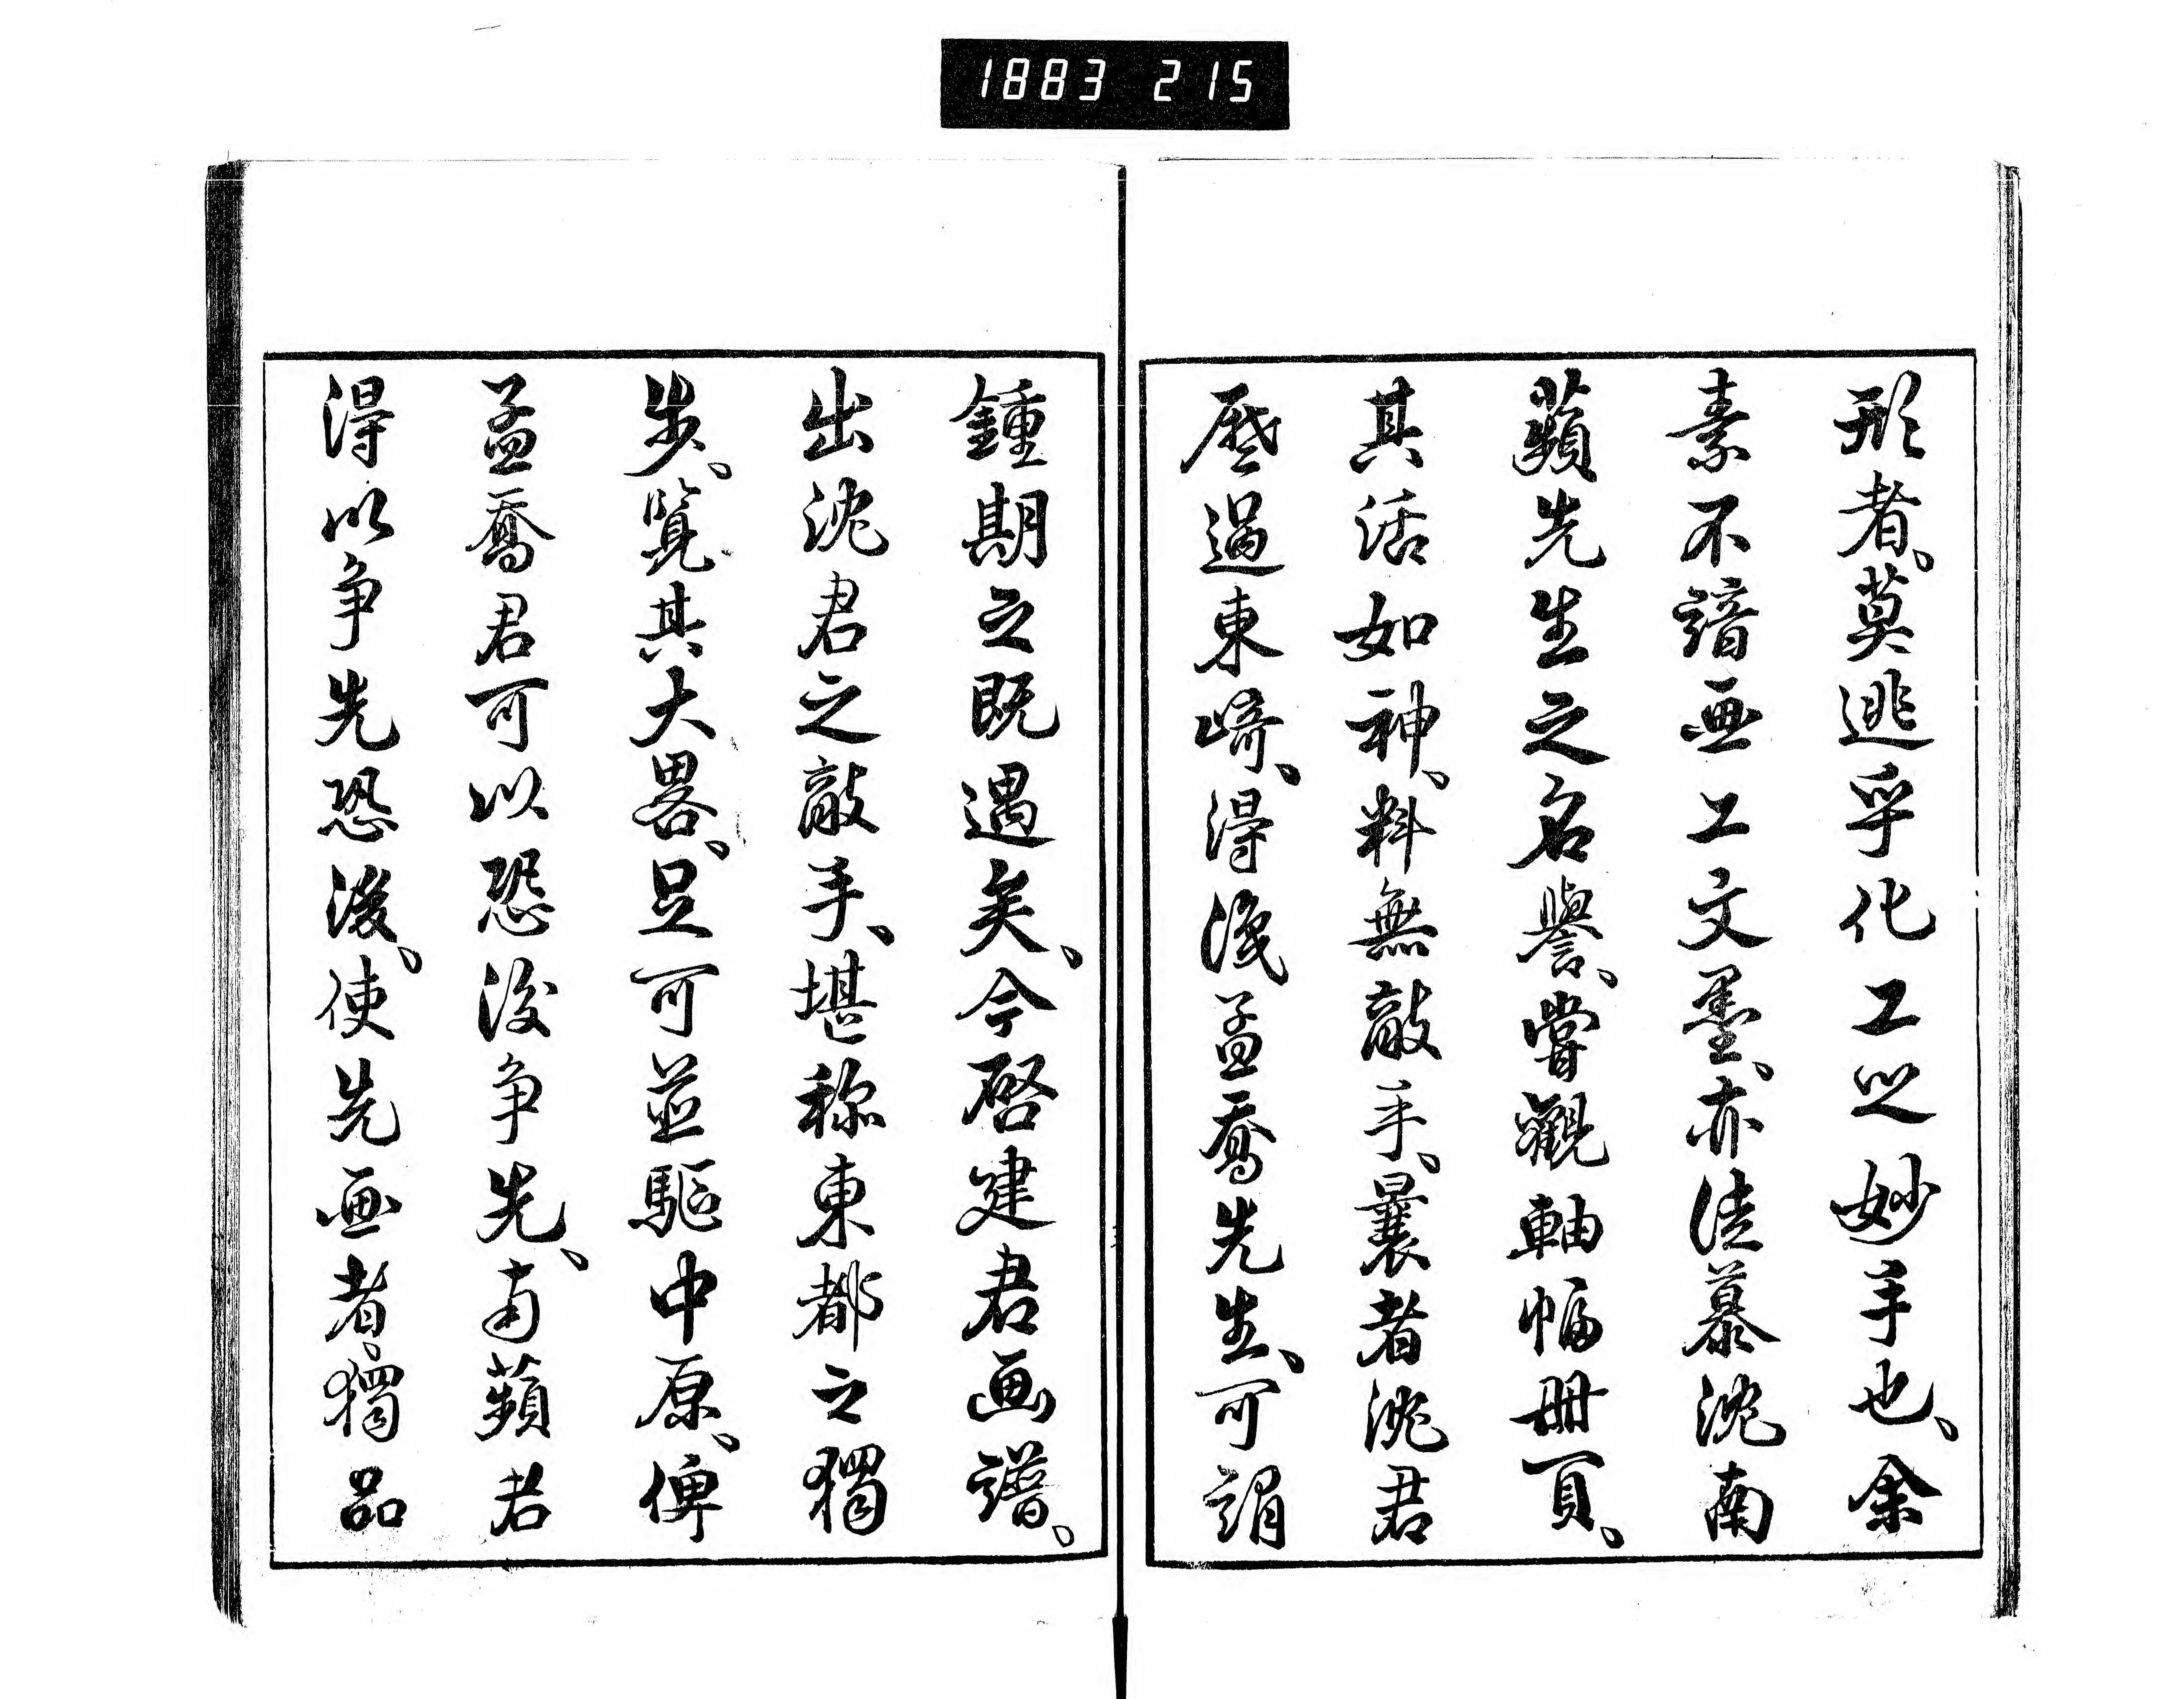 1883 215
形者、莫逃乎化工之妙手也、余
素不諳画工文墨、亦徒慕沈南
蘋先生之名譽、嘗觀軸幅冊頁、
其活如神、料無敵手、曩者沈君
歷過東崎、得淺孟喬先生、可謂
鍾期之既遇矣、今啓建君画譜、
出沈君之敵手、堪称東都之獨
步、覽其大畧、足可並驅中原、俾
孟喬君可以恐後争先、南蘋君
得以争先恐後、使先画者、獨品